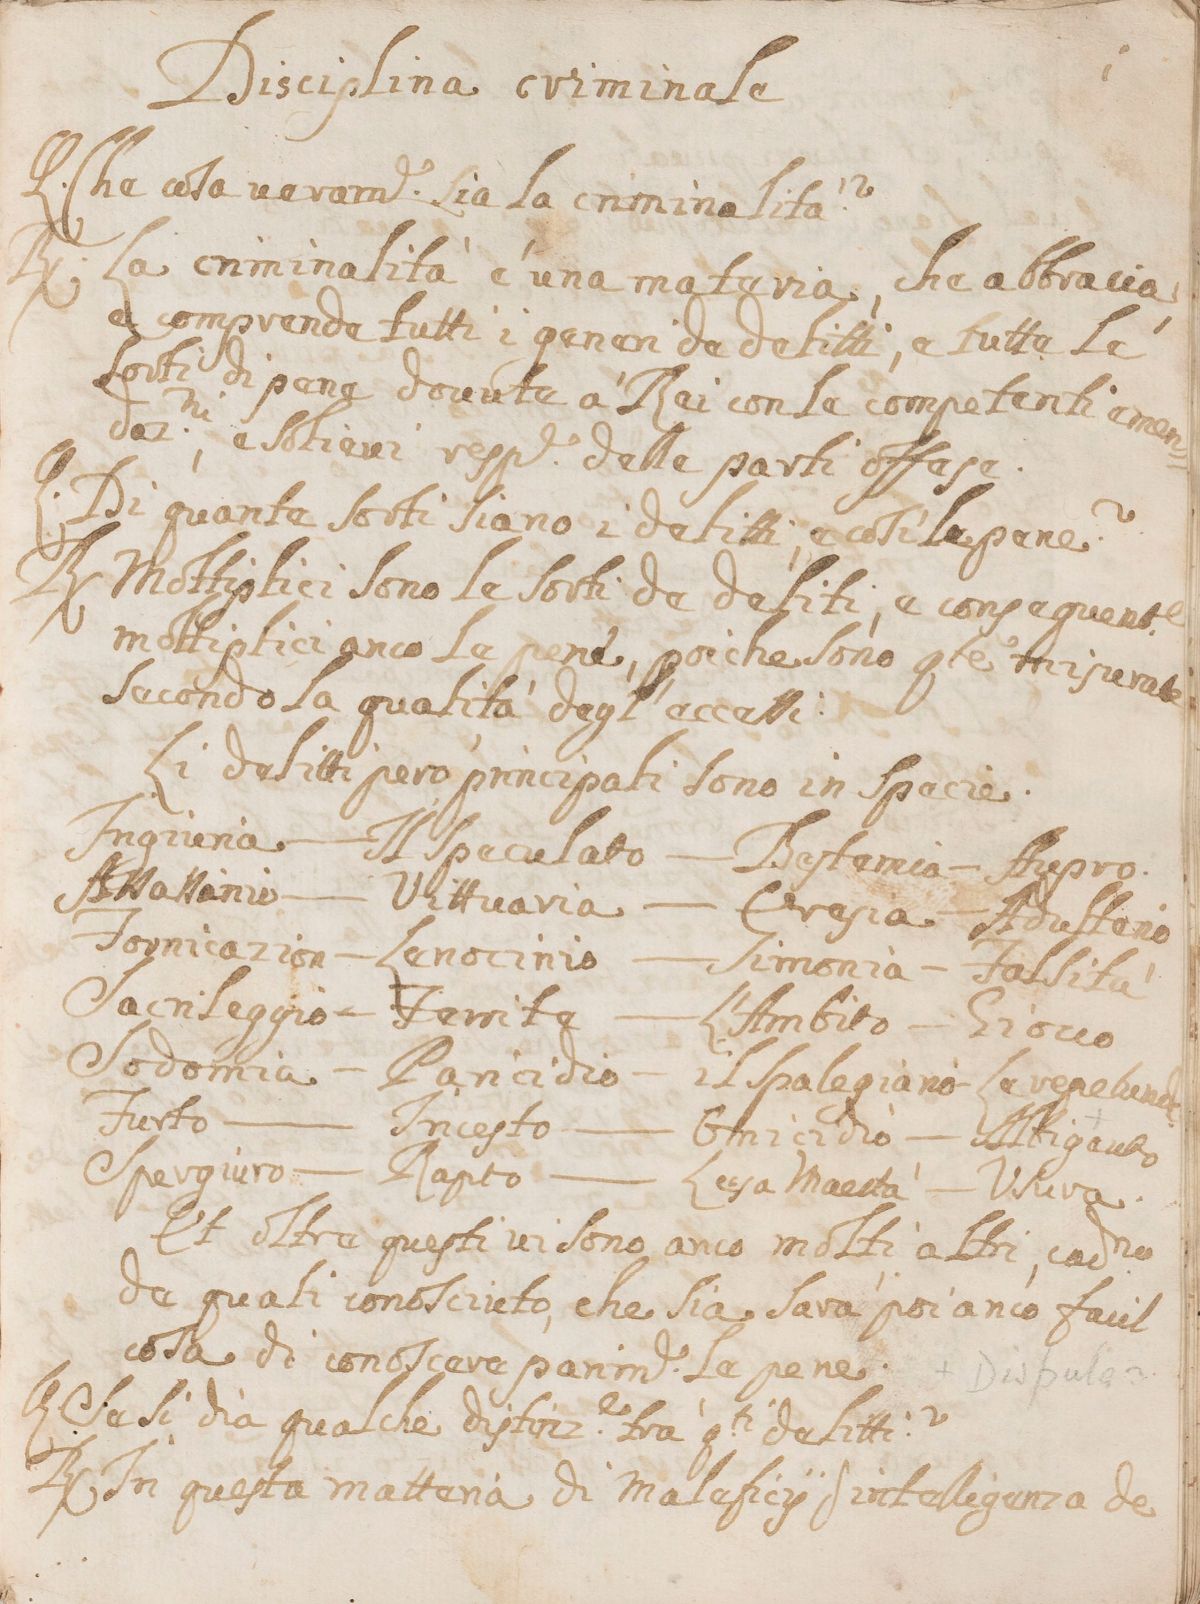 1
Disciplina criminale
Q. Che cosa veram.te sia la criminalità?
R. La criminalità è una materia, che abbracia,
e comprende tutti i generi de delitti, e tutte le
sorti di pene dovute a' Rei con le competenti emen=
daz.ni, e solievi resp.e delle parti offese.
Q. Di quante sorti siano i delitti, e così le pene?
R. Moltiplici sono le sorti de deliti, e conseguent.e
moltiplici anco le pene, poiche sono q.te misurate
secondo la qualità degl' eccessi.
Li delitti però principali sono in specie.
Ingiuria — Il Peculato — Bestemia — Stupro.
Assassinio — Vittuaria — Eresia — Adulterio
Fornicazion — Lenocinio — Simonia — Falsità
Sacrileggio — Ferrite — L'Ambito — Giocco
Sodomia — Paricidio — il spalegiano — Le vepelunde
Furto — Incesto — Omicidio — Albigeuto
Spergiuro — Rapto — Lesa Maestà — Usura.
Et oltre questi vi sono anco molti altri, cad.no
de quali conosciuto, che sia, sarà poi anco facil
cosa di conoscere parim.te le pene.
+ Dispule
Q. Se si dia qualche distinz.e trà q.ti delitti?
R. In questa matteria di Maleficij p intelligenza de